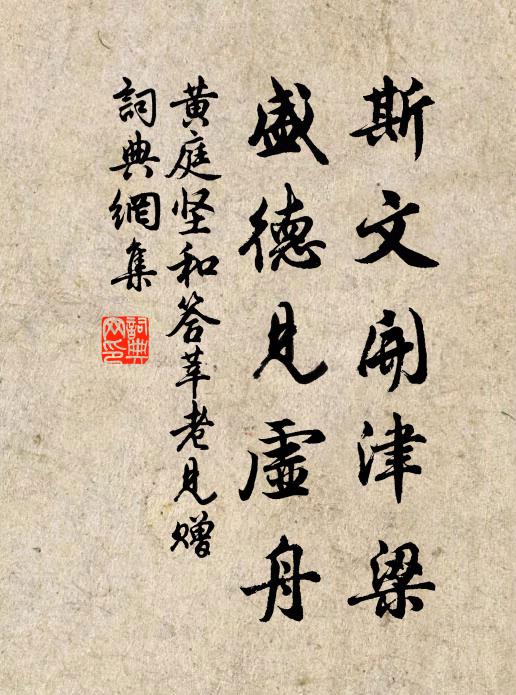 斯文開津梁
盛德見虛舟
黃庭坚和答莘老見贈
詞典網集
詞典網印